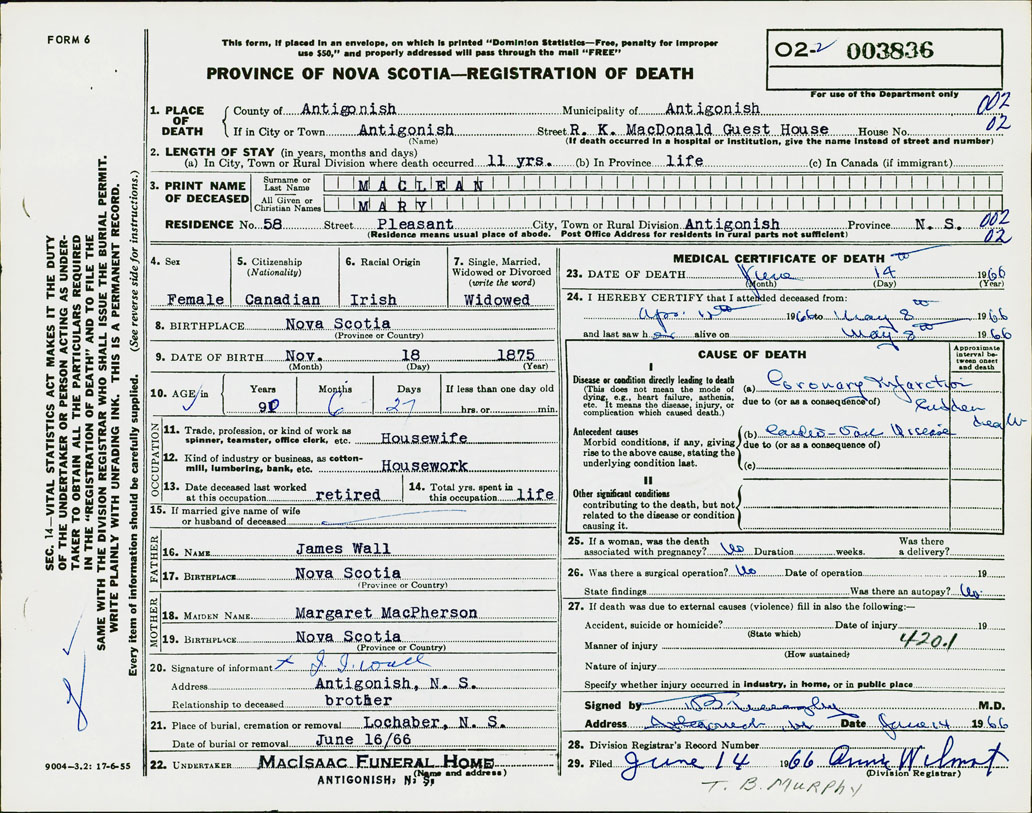 FORM 6
This form, if placed in an envelope, on which is printed "Dominion Statistics—Free, penalty for improper
use $50," and properly addressed will pass through the mail "FREE"
PROVINCE OF NOVA SCOTIA—REGISTRATION OF DEATH
02-2 003836
For use of the Department only
SEC. 14—VITAL STATISTICS ACT MAKES IT THE DUTY
OF THE UNDERTAKER OR PERSON ACTING AS UNDER-
TAKER TO OBTAIN ALL THE PARTICULARS REQUIRED
IN THE "REGISTRATION OF DEATH" AND TO FILE THE
SAME WITH THE DIVISION REGISTRAR WHO SHALL ISSUE THE BURIAL PERMIT.
WRITE PLAINLY WITH UNFADING INK. THIS IS A PERMANENT RECORD.
Every item of information should be carefully supplied. (See reverse side for instructions.)
1. PLACE OF DEATH
County of Antigonish Municipality of Antigonish 002
If in City or Town Antigonish Street R. K. MacDonald Guest House House No. 02
(Name) (If death occurred in a hospital or institution, give the name instead of street and number)
2. LENGTH OF STAY (in years, months and days)
(a) In City, Town or Rural Division where death occurred 11 yrs. (b) In Province life (c) In Canada (if immigrant)
3. PRINT NAME OF DECEASED
Surname or Last Name MACLEAN
All Given or Christian Names MARY
RESIDENCE No. 58 Street Pleasant City, Town or Rural Division Antigonish Province N. S. 002
(Residence means usual place of abode. Post Office Address for residents in rural parts not sufficient) 02
4. Sex
Female
5. Citizenship
(Nationality)
Canadian
6. Racial Origin
Irish
7. Single, Married,
Widowed or Divorced
(write the word)
Widowed
8. BIRTHPLACE Nova Scotia
(Province or Country)
9. DATE OF BIRTH Nov. 18 1875
(Month) (Day) (Year)
10. AGE in
Years Months Days If less than one day old
90 6 27 hrs. or min.
OCCUPATION
11. Trade, profession, or kind of work as
spinner, teamster, office clerk, etc. Housewife
12. Kind of industry or business, as cotton-
mill, lumbering, bank, etc. Housework
13. Date deceased last worked
at this occupation retired
14. Total yrs. spent in
this occupation life
15. If married give name of wife
or husband of deceased
FATHER
16. NAME James Wall
17. BIRTHPLACE Nova Scotia
(Province or Country)
MOTHER
18. MAIDEN NAME Margaret MacPherson
19. BIRTHPLACE Nova Scotia
(Province or Country)
20. Signature of informant x J. J. Wall
Address Antigonish, N. S.
Relationship to deceased brother
21. Place of burial, cremation or removal Lochaber, N. S.
Date of burial or removal June 16/66
22. UNDERTAKER MACISAAC FUNERAL HOME
(Name and address)
ANTIGONISH, N. S.
9004—3.2: 17-6-55
MEDICAL CERTIFICATE OF DEATH
23. DATE OF DEATH June 14th 1966
(Month) (Day) (Year)
24. I HEREBY CERTIFY that I attended deceased from:
Apr. 1966 to May 8th 1966
and last saw her alive on May 8th 1966
CAUSE OF DEATH
Approximate
interval be-
tween onset
and death
I
Disease or condition directly leading to death
(This does not mean the mode of
dying, e.g., heart failure, asthenia,
etc. It means the disease, injury, or
complication which caused death.)
(a) Coronary Infarction
due to (or as a consequence of) Sudden death
Antecedent causes
Morbid conditions, if any, giving
rise to the above cause, stating the
underlying condition last.
(b) Cardio-Vasc Disease
due to (or as a consequence of)
(c)
II
Other significant conditions
contributing to the death, but not
related to the disease or condition
causing it.
25. If a woman, was the death
associated with pregnancy? No Duration weeks. Was there
a delivery?
26. Was there a surgical operation? No Date of operation 19
State findings Was there an autopsy? No.
27. If death was due to external causes (violence) fill in also the following:—
Accident, suicide or homicide? Date of injury 19
(State which)
Manner of injury 420.1
(How sustained)
Nature of injury
Specify whether injury occurred in industry, in home, or in public place
Signed by M.D.
Address Antigonish Date June 14 1966
28. Division Registrar's Record Number
29. Filed June 14 1966 Anna Wilmot
(Division Registrar)
T. B. MURPHY